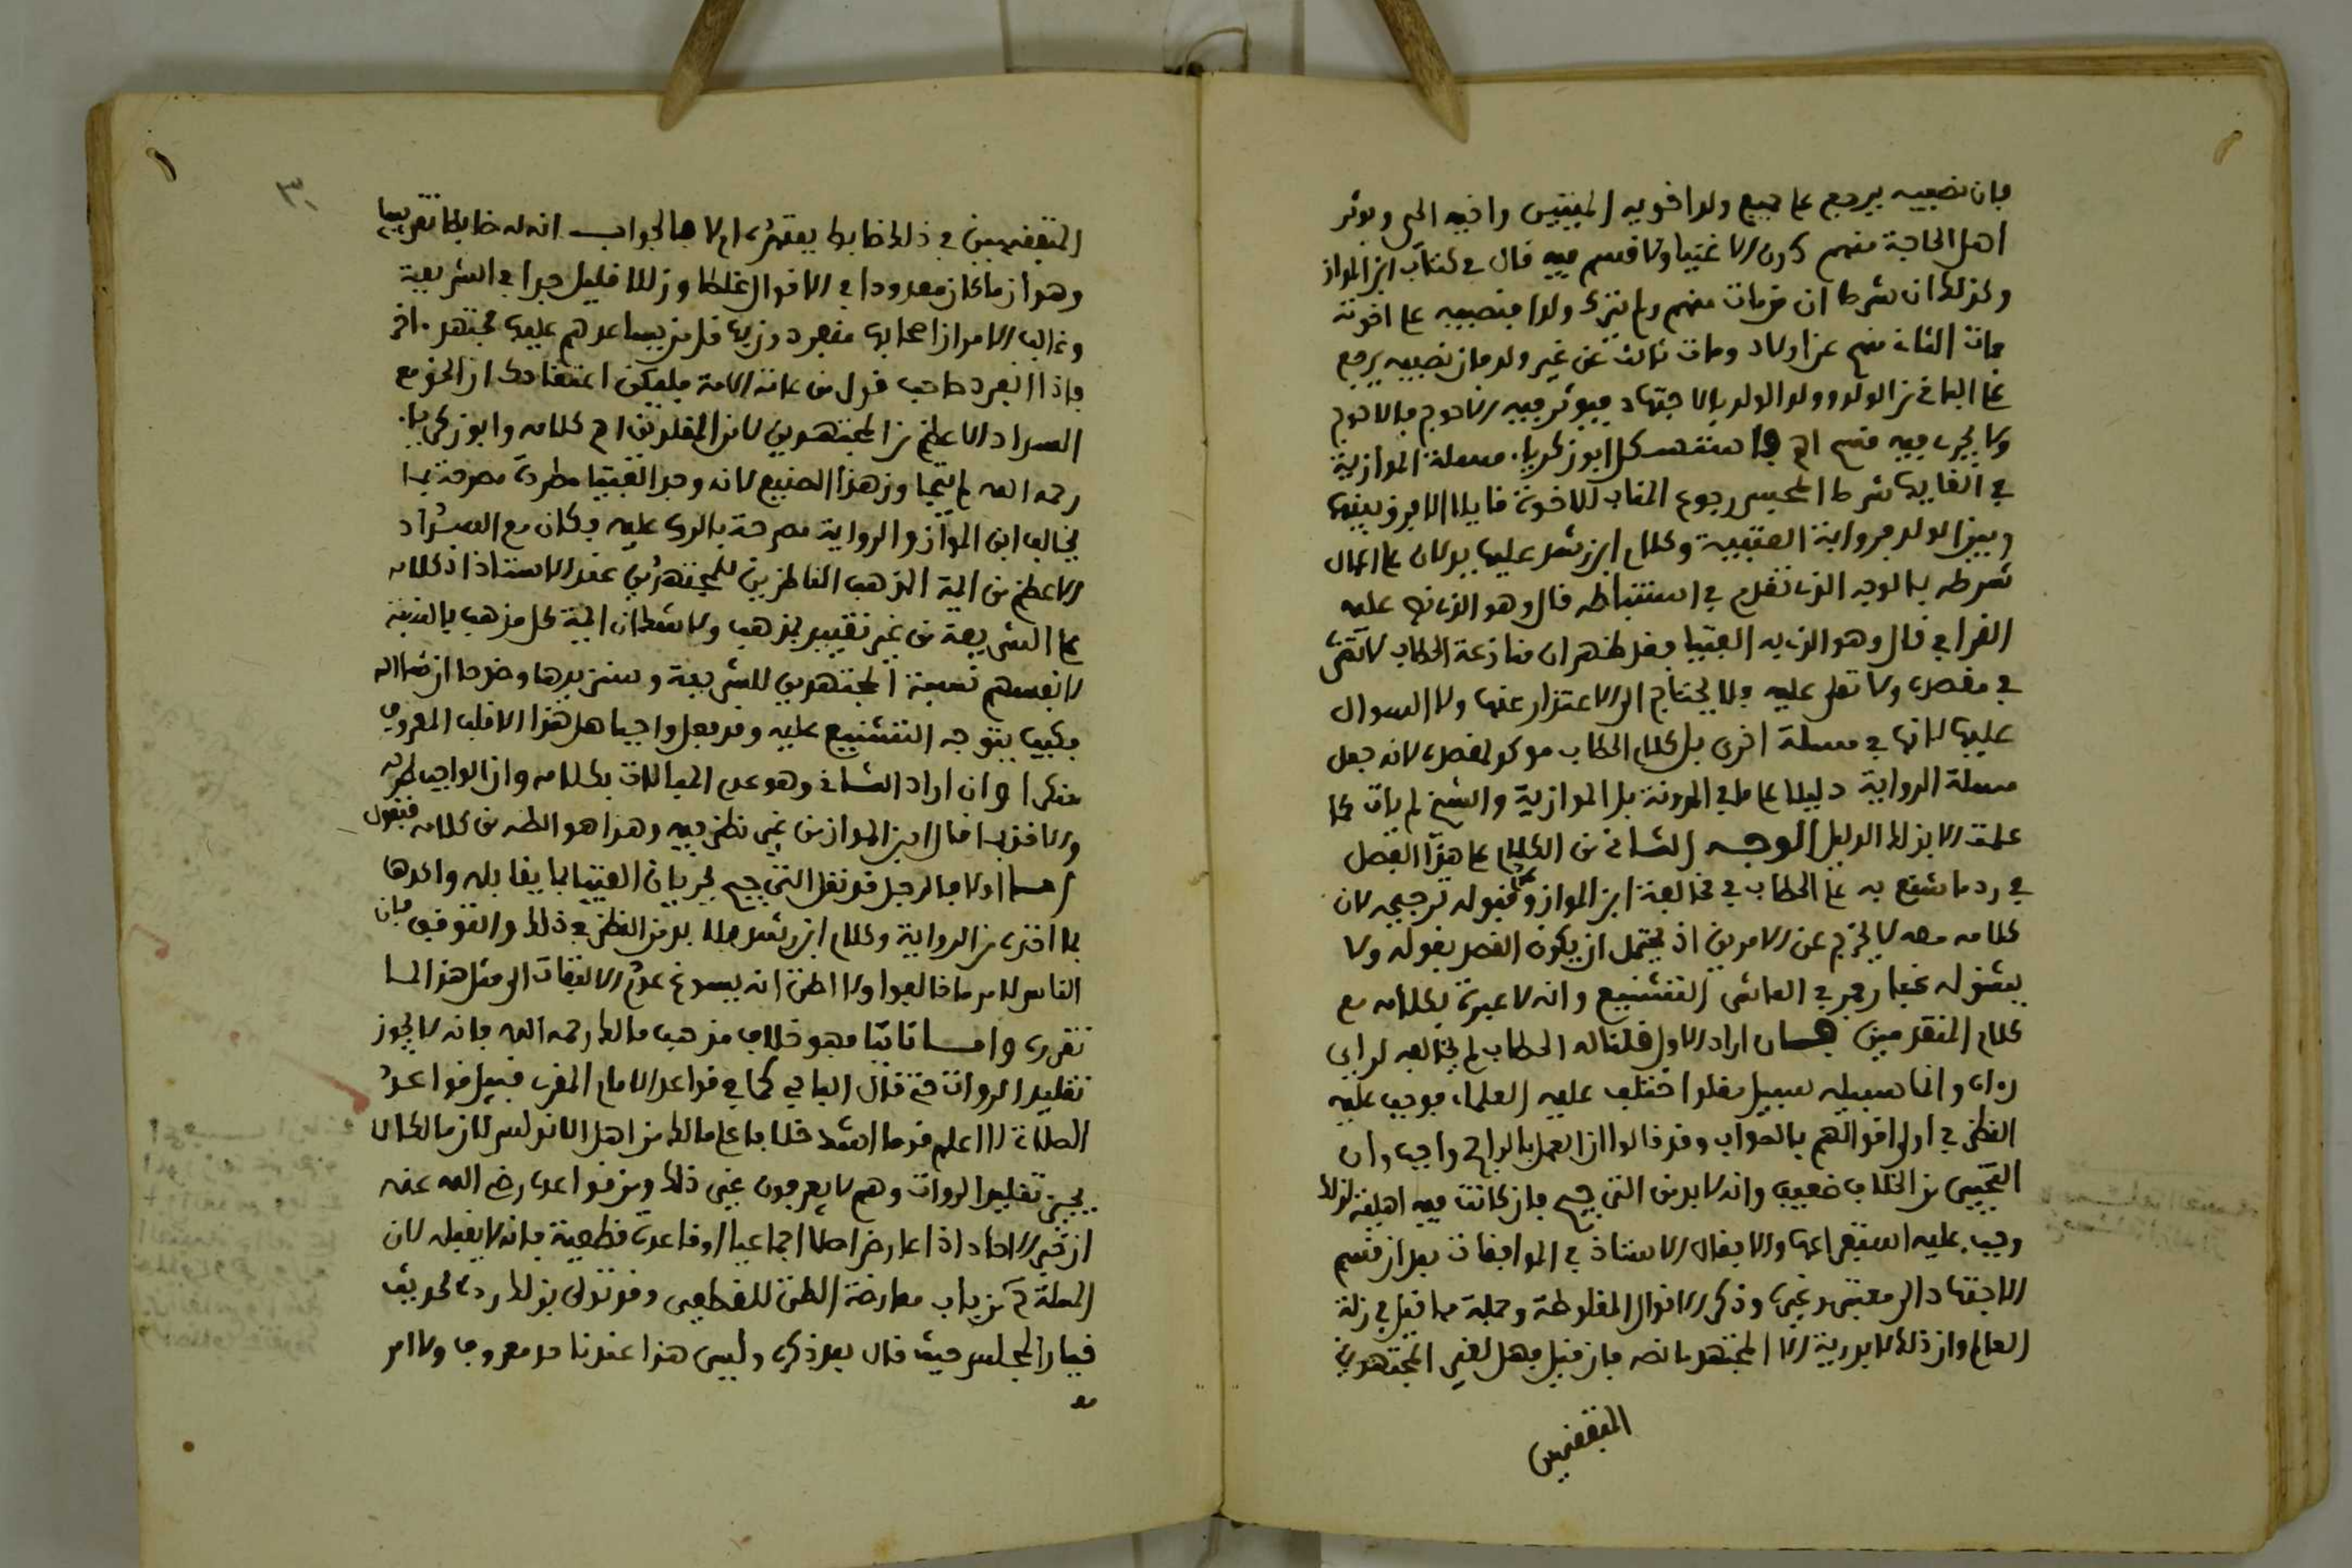 فإن نصيبه يرجع على جميع ولد اخويه الميتين واخيه الحي ويوثر
اهل الحاجة منهم دون الاغنيا ولا قسم فيه قال في كتاب ابن المواز
وكذلك ان شرط ان من مات منهم ولم يترك ولدا فنصيبه على اخوته
فمات الثاني منهم عن اولاد ومات ثالث عن غير ولد فان نصيبه يرجع
على الباقي من الولد وولد الولد بالاجتهاد فيوثر فيه الاحوج فالاحوج
ولا يجري فيه قسم اهـ وا ستشكل ابو زكرياء مسئلة الموازية
في الغايها شرط المحبس رجوع المناب للاخوة قايلا الا فرق بينها
وبين الولد فرواية العتبية وكلام ابن رشد عليها يدلان على اعمال
شرطه بالوجه الذي تقدم في استنباطه قال وهو الذي نص عليه
القرافي قال وهو الذي به الفتيا فقد ظهر ان منازعة الحطاب لا تقدح
في مقصده ولا تعلى عليه فلا يحتاج الى الاعتذار عنها ولا السوال
عليها لانها في مسئلة اخرى بل كلام الحطاب موكد لمقصده لانه جعل
مسئلة الرواية دليلا على ما في المدونة بل الموازية والشيخ لم يات بما
علمت الا بذلك الدليل الوجه الثاني من الكلام على هذا الفصل
في رد ما شنع به على الحطاب في مخالفة ابن المواز وعدم قبوله ترجيحه لان
كلامه معه لا يخرج عن الامرين اذ يحتمل ان يكون القصد بقوله ولا
يشق له غبار فجر في الماشى التشنيع وانه لا عبرة بكلامه مع
كلام المتقدمين فان اراد الاول قلنا له الحطاب لم يخالفه لراي
راه وانما سبيله سبيل مقلد اختلف عليه العلماء فوجب عليه
النظر في اولى اقوالهم بالصواب وقد قالوا ان العمل بالراجح واجب وان
التخيير من الخلاف ضعيف وانه لا بد من الترجيح فان كانت فيه اهلية لذلك
وجب عليه استفراغها والا فقال الاستاذ في الموافقات بعد ان قسم
الاجتهاد الى معتبر وغيره وذكر الاقوال المغلوطة وجملة ما قيل في زلة
العالم وان ذلك لا يدريه الا المجتهد ما نصه فان قيل فهل لغير المجتهدين
المتفقهين
المتفقهين في ذلك ضابط يعتمده ام لا فالجواب انه له ضابطا تقريبيا
وهو ان ما كان معدودا في الاقوال غلطا وزللا قليل جدا في الشريعة
وغالب الامر ان اصحابها منفردون بها قل من يساعدهم عليها مجتهد ءاخر
فاذا انفرد صاحب قول عن عامة الامة فليكن اعتقادك ان الحق مع
السواد الاعظم من المجتهدين لا من المقلدين اهـ كلامه وابو زكرياء
رحمه الله لم يتجاوز هذا الصنيع لانه وجد الفتيا مطردة مصرحة بما
يخالف ابن المواز والرواية مصرحة بالرد عليه فكان مع السواد
الاعظم من ايمة المذهب الناظرين للمجتهدين عند الاستاذ اذ كلامه
على الشريعة من غير تقييد بمذهب ولا شك ان ايمة كل مذهب بالنسبة
لانفسهم نسبة المجتهدين للشريعة وسنزيدها وضوحا ان شا الله
فكيف يتوجه التشنيع عليه وقد فعل واجبا هل هذا الا قلب المعروف
منكرا وان اراد الثاني وهو عدم المبالات بكلامه وان الواجب طرحه
والاخذ بما قال ابن المواز من غير نظر فيه وهذا هو الظ من كلامه فنقول
اما اولا فالرجل قد نقل الترجيح بجريان الفتيا بما يقابله واكدها
بما اخذه من الرواية وكلام ابن رشد فلا بد من النظر في ذلك والتوقف فان
الناس لامر ما خالفوا ولا اظن انه يسوغ عدم الالتفات الى مثل هذا لما
تقرر واما ثانيا فهو خلاف مذهب مالك رحمه الله فانه لا يجوز
تقليد الروات حتى قال الباجي كما في قواعد الامام المقري قبيل قواعد
الصلاة لا اعلم قوما اشد خلافا على مالك من اهل الاندلس لان مالكا لا
يجيز تقليد الروات وهم لا يعرفون غير ذلك ومن قواعده رضي الله عنه
ان خبر الاحاد اذا عارض اصلا اجماعيا او قاعدة قطعية فانه لا يقبله لان
المسئلة ح من باب معارضة الظن للقطعي وقد تولى بذلك رده لحديث
خيار المجلس حيث قال بعد ذكره وليس هذا عندنا حد معروف ولا امر
مع